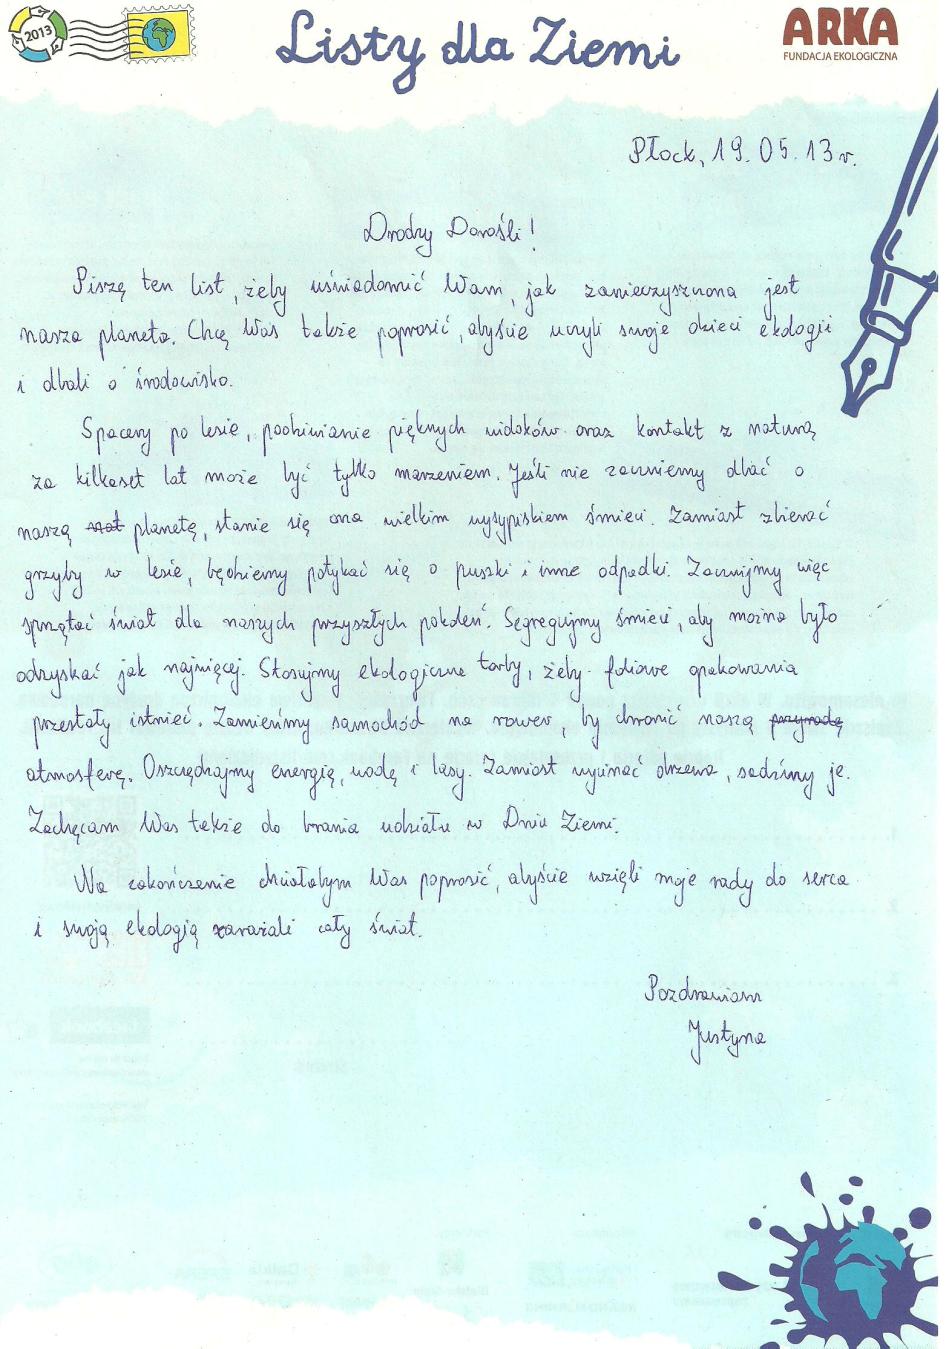 2013
Listy dla Ziemi
ARKA
FUNDACJA EKOLOGICZNA
Płock, 19.05.13r.
Drodzy Dorośli!
Piszę ten list, żeby uświadomić Wam, jak zanieczyszczona jest
nasza planeta. Chcę Was także poprosić, abyście uczyli swoje dzieci ekologii
i dbali o środowisko.
Spacery po lesie, podziwianie pięknych widoków oraz kontakt z naturą
za kilkaset lat może być tylko marzeniem. Jeśli nie zaczniemy dbać o
naszą planetę, stanie się ona wielkim wysypiskiem śmieci. Zamiast zbierać
grzyby w lesie, będziemy potykać się o puszki i inne odpadki. Zacznijmy więc
sprzątać świat dla naszych przyszłych pokoleń. Segregujmy śmieci, aby można było
odzyskać jak najwięcej. Stosujmy ekologiczne torby, żeby foliowe opakowania
przestały istnieć. Zamieńmy samochód na rower, by chronić naszą przyrodę
atmosferę. Oszczędzajmy energię, wodę i lasy. Zamiast wycinać drzewa, sadźmy je.
Zachęcam Was także do brania udziału w Dniu Ziemi.
Na zakończenie chciałabym Was poprosić, abyście wzięli moje rady do serca
i swoją ekologią zarażali cały świat.
Pozdrawiam
Justyna